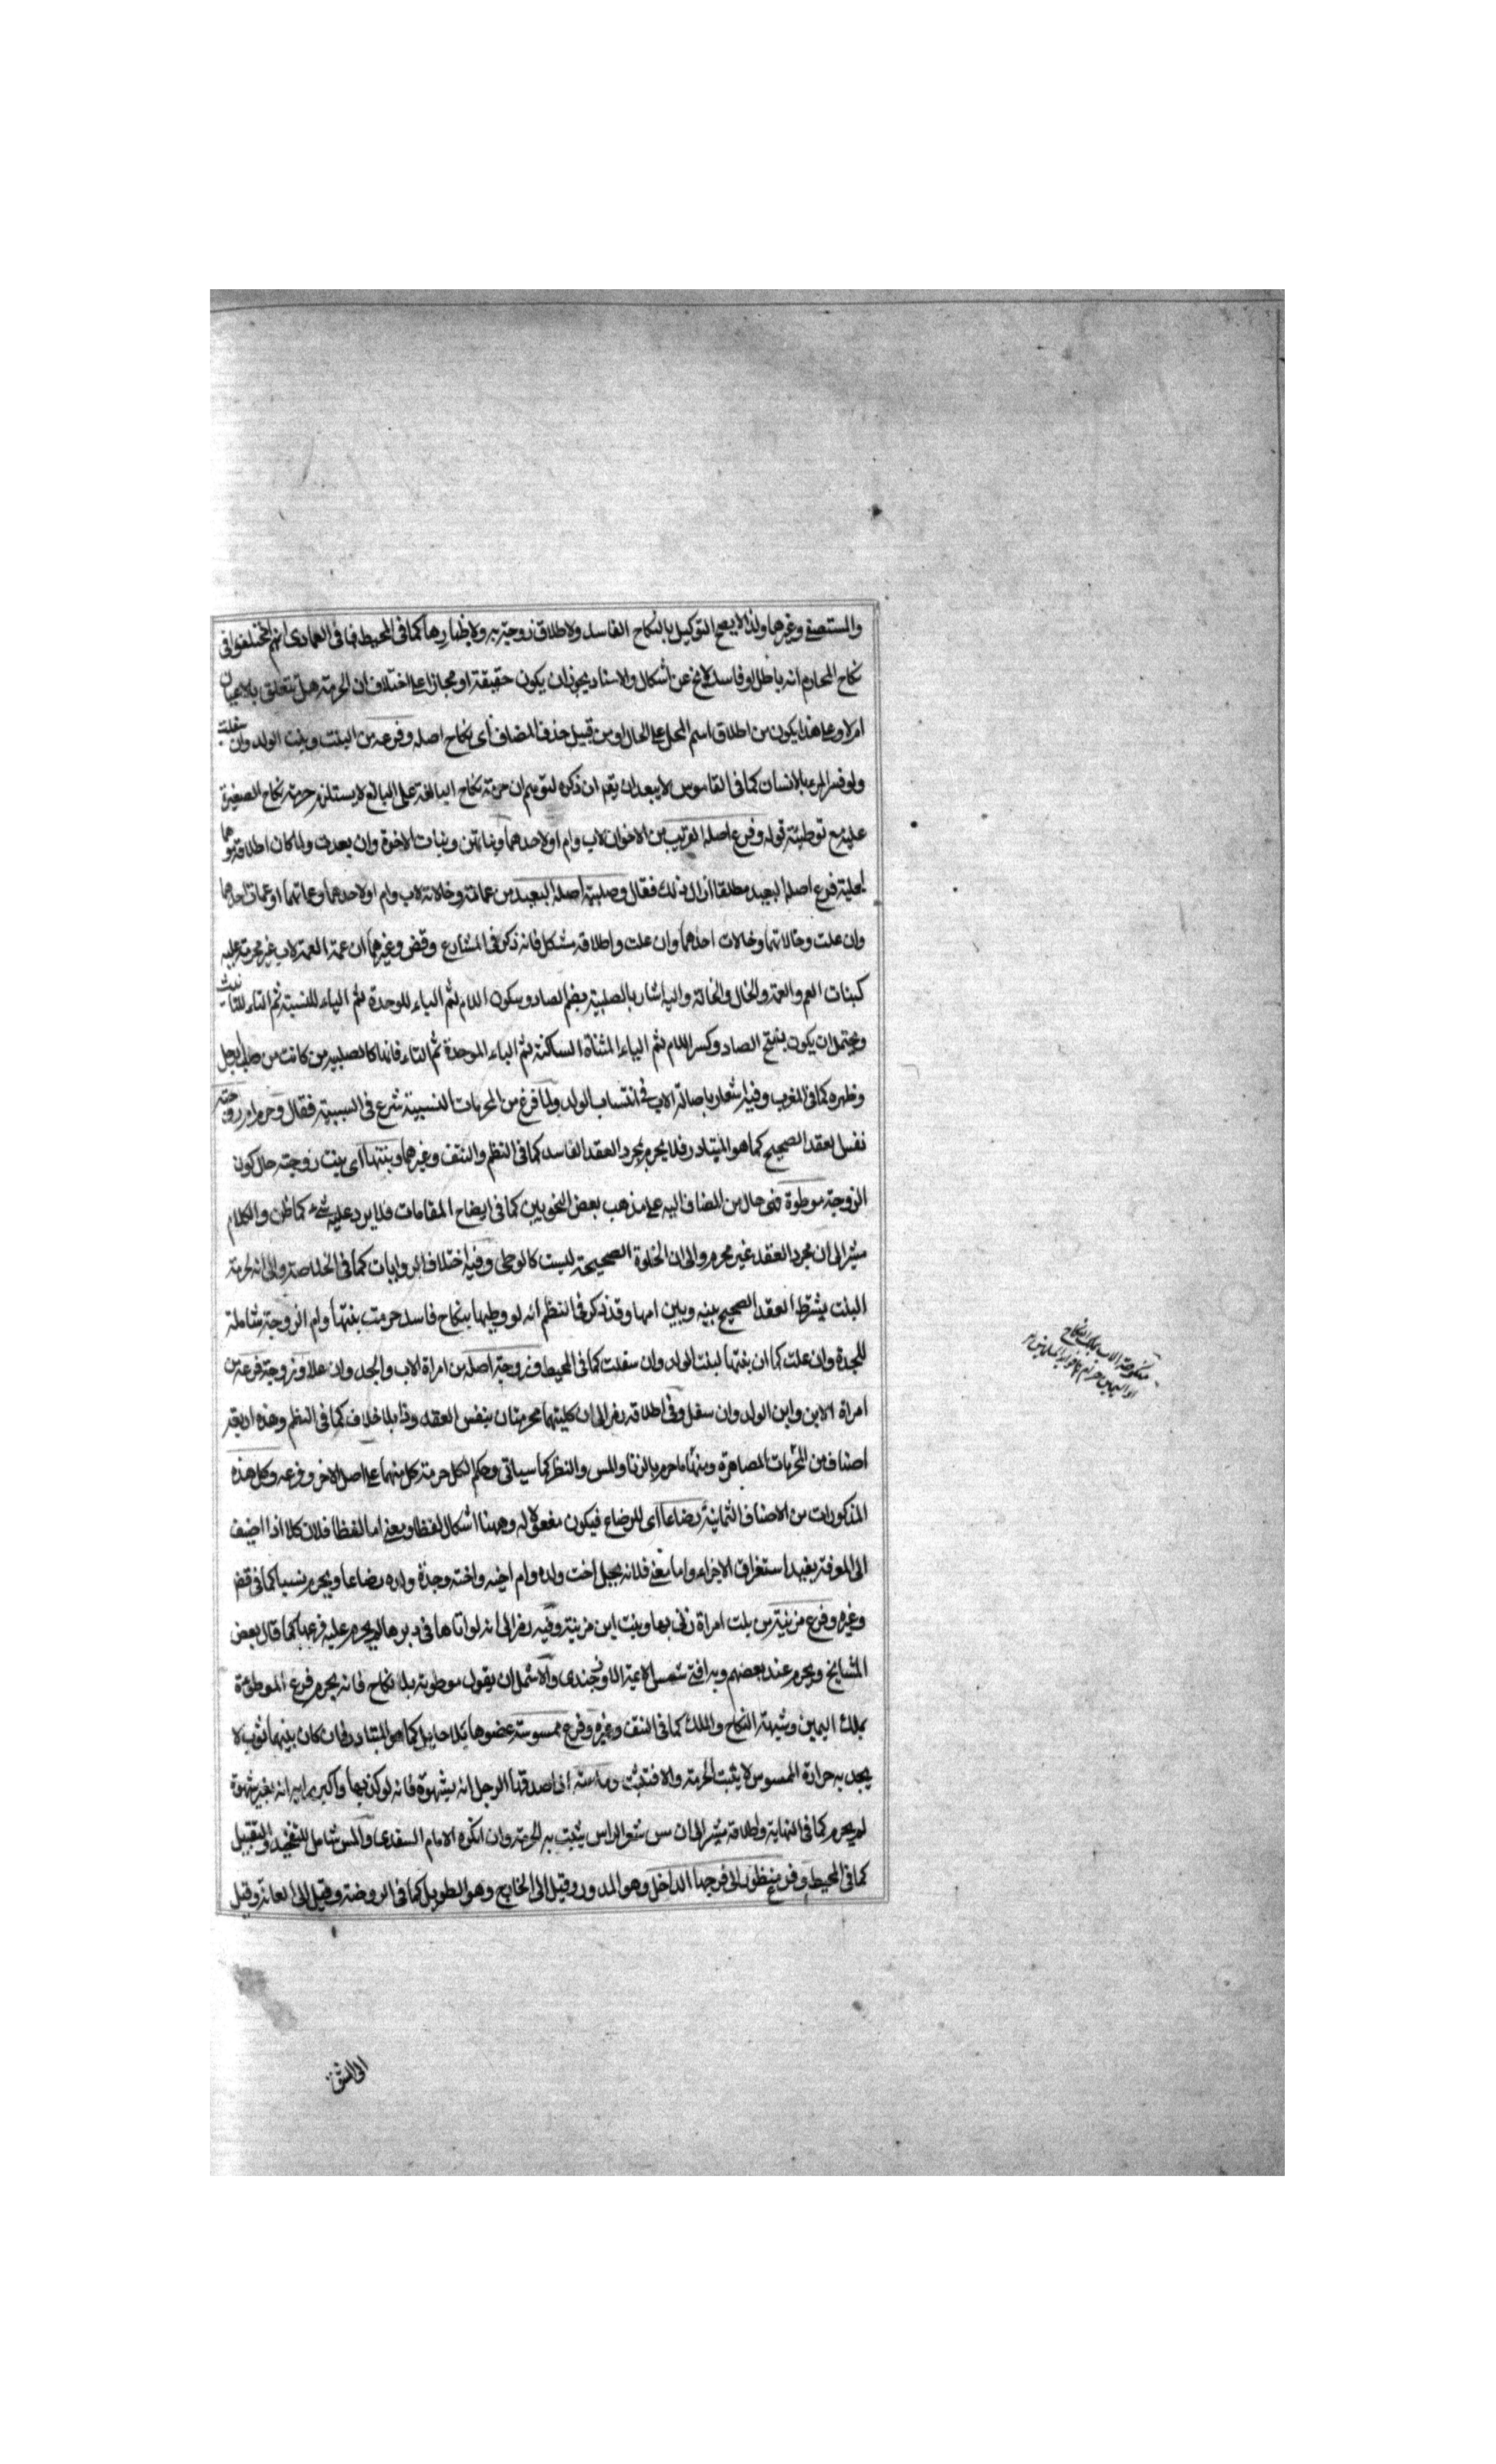 والمستصفى وغيرها ولذا لا يصح التوكيل بالنكاح الفاسد ولا طلاق زوجته به ولا ظهارها كما في المحيط فما في العمادى انهم اختلفوا في
نكاح المحارم انه باطل او فاسد لا يخ عن اشكال والاسناد يجوز ان يكون حقيقة او مجازا على اختلاف ان الحرمة هل يتعلق بالاعيان
ام لا وعلى هذا يكون من اطلاق اسم المحل على الحال او من قبيل حذف المضاف اى نكاح اصله وفرعه من البنت وبنت الولد وان سفلت
ولو فسر المرء بالانسان كما في القاموس لا يبعد ان يقم ان ذكره لتوهم ان حرمة نكاح البالغة على البالغ لا يستلزم حرمة نكاح الصغيرة
عليه مع توطيئة قوله وفرع اصله القريب من الاخوات لاب وام او لاحدهما وبناتهن وبنات الاخوة وان بعدت ولما كان اطلاقه موهما
لحلية فرع اصله البعيد مطلقا ازال ذلك فقال وصلبية اصله البعيد من عماته وخالاته لاب وام او لاحدهما وعماتهما او عمات احدهما
وان علت وخالاتهما وخالات احدهما وان علت واطلاقه مشكل فانه ذكر في المشارع وقض وغيرهما ان عمة العمة لاب غير محرمة عليه
كبنات العم والعمة والخال والخالة واليه اشار بالصلبية بضم الصاد وسكون اللام ثم الباء للوحدة ثم الياء للنسبة ثم التاء للتانيث
ويحتمل ان يكون بفتح الصاد وكسر اللام ثم الياء المثناة الساكنة ثم الباء الموحدة ثم التاء فانها كالصلبية من كانت من صلب رجل
وظهره كما في المغرب وفيه اشعار باصالة الاب في انتساب الولد ولما فرغ من المحرمات النسبية شرع في السببية فقال وحرم ام زوجته
نفس العقد الصحيح كما هو المتبادر فلا يحرم بمجرد العقد الفاسد كما في النظم والنتف وغيرهما وبنتها اى بنت زوجته حال كون
الزوجة موطوة فهى حال من المضاف اليه على مذهب بعض النحويين كما في ايضاح المقامات فلا يرد عليه شىء كما ظن والكلام
مشير الى ان مجرد العقد غير محرم والى ان الخلوة الصحيحة ليست كالوطى وفيه اختلاف الروايات كما في الخلاصة والى انه لحرمة
البنت يشترط العقد الصحيح بينه وبين امها وقد ذكر في النظم انه لو وطيها بنكاح فاسد حرمت بنتها وام الزوجة شاملة
للجدة وان علت كما ان بنتها لبنت الولد وان سفلت كما في المحيط وزوجة اصله من امراة الاب والجد وان علا وزوجة فرعه من
امراة الابن وابن الولد وان سفل وفي اطلاقه رمز الى ان كليتهما محرمتان بنفس العقد وذا بلا خلاف كما في النظم وهذه اربعة
اصناف من المحرمات المصاهرة ومنها ما حرم بالزنا والمس والنظر كما سياتى وحكم الكل حرمة كل منهما على اصل الاخر وفرعه وكل هذه
المذكورات من الاصناف الثمانية رضاعا اى للرضاع فيكون مفعولا له وههنا اشكال لفظا ومعنى اما لفظا فلان كلا اذا اضيف
الى المعرفة يفيد استغراق الاجزاء واما معنى فلانه يحل اخت ولده وام اخيه واخته وجدة ولده رضاعا ويحرم نسبا كما في قض
وغيره وفرع مزنيته من بنت امراة زنى بها وبنت ابن مزنيته وفيه رمز الى انه لو اتاها في دبرها لم يحرم عليه فرعها كما قال بعض
المشايخ ويحرم عند بعضهم وبه افتى شمس الايمة الاوزجندى والاشمل ان يقول موطوبة بلا نكاح فانه يحرم فرع الموطوءة
بملك اليمين وشبهة النكاح والملك كما في النتف وغيره وفرع ممسوسة عضوها بلا حايل كما هو المتبادر فان كان بينهما ثوب لا
يجد به حرارة الممسوس لا يثبت الحرمة والا فتثبت وماسته اذا صدقها الرجل انه بشهوة فانه لو كذبها واكبر رايه انه بغير شهوة
لم يحرم كما في النهاية واطلاقه مشير الى ان مس شعر الراس يثبت به الحرمة وان انكره الامام السغدى والمس شامل للتفخيذ والتقبيل
كما في المحيط وفرع منظور الى فرجها الداخل وهو المدور وقيل الى الخارج وهو الطويل كما في الروضة وقيل الى العانة وقيل
الى الشق